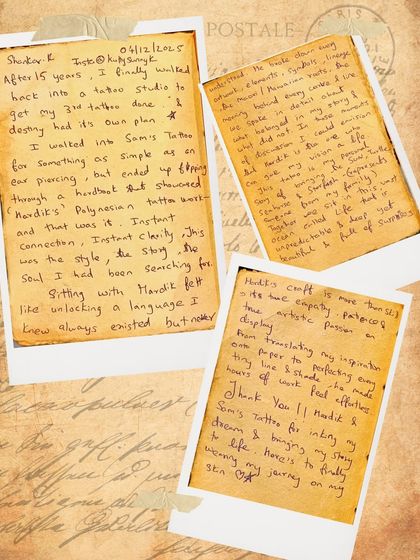 Shankar.R
Insta@KuttySunnyK
04/12/2025
After 15 years, I finally walked
back into a tattoo studio to
get my 3rd tattoo done &
destiny had it's own plan
I walked into Sam's Tattoo
for something as simple as an
ear piercing, but ended up flipping
through a hardbook that showcased
(Hardik's) Polynesian tattoo work
and that was it. Instant
connection, Instant clarity, This
was the style, the story, the
soul I had been searching for.
Sitting with Hardik felt
like unlocking a language I
knew always existed but never
understood. He broke down every
artwork, elements, symbols, lineage,
the maori / Hawaiian roots, the
meaning behind every curve & line.
We spoke in detail about
what belonged in my story &
what did not. In those moments
of discussion I could envision
that Hardik is the one who
can give my vision a life.
This tattoo is my power Turtle
Sun
Son of bringing
& Starfish (represents
someone from my family)
Together we sit in this vast
ocean called life that is
unpredictable & deep yet
beautiful & full of surprises
Hardik's craft is more than skill
it's true empathy, patience &
true artistic passion on
display.
From translating my inspiration
onto paper to perfecting every
tiny line & shade, he made
hours of work feel effortless.
Thank You !! Hardik &
Sam's Tattoo for inking my
dream & bringing my story
to life. Here's to finally
wearing my journey on my
skin
POSTALE
PARIS